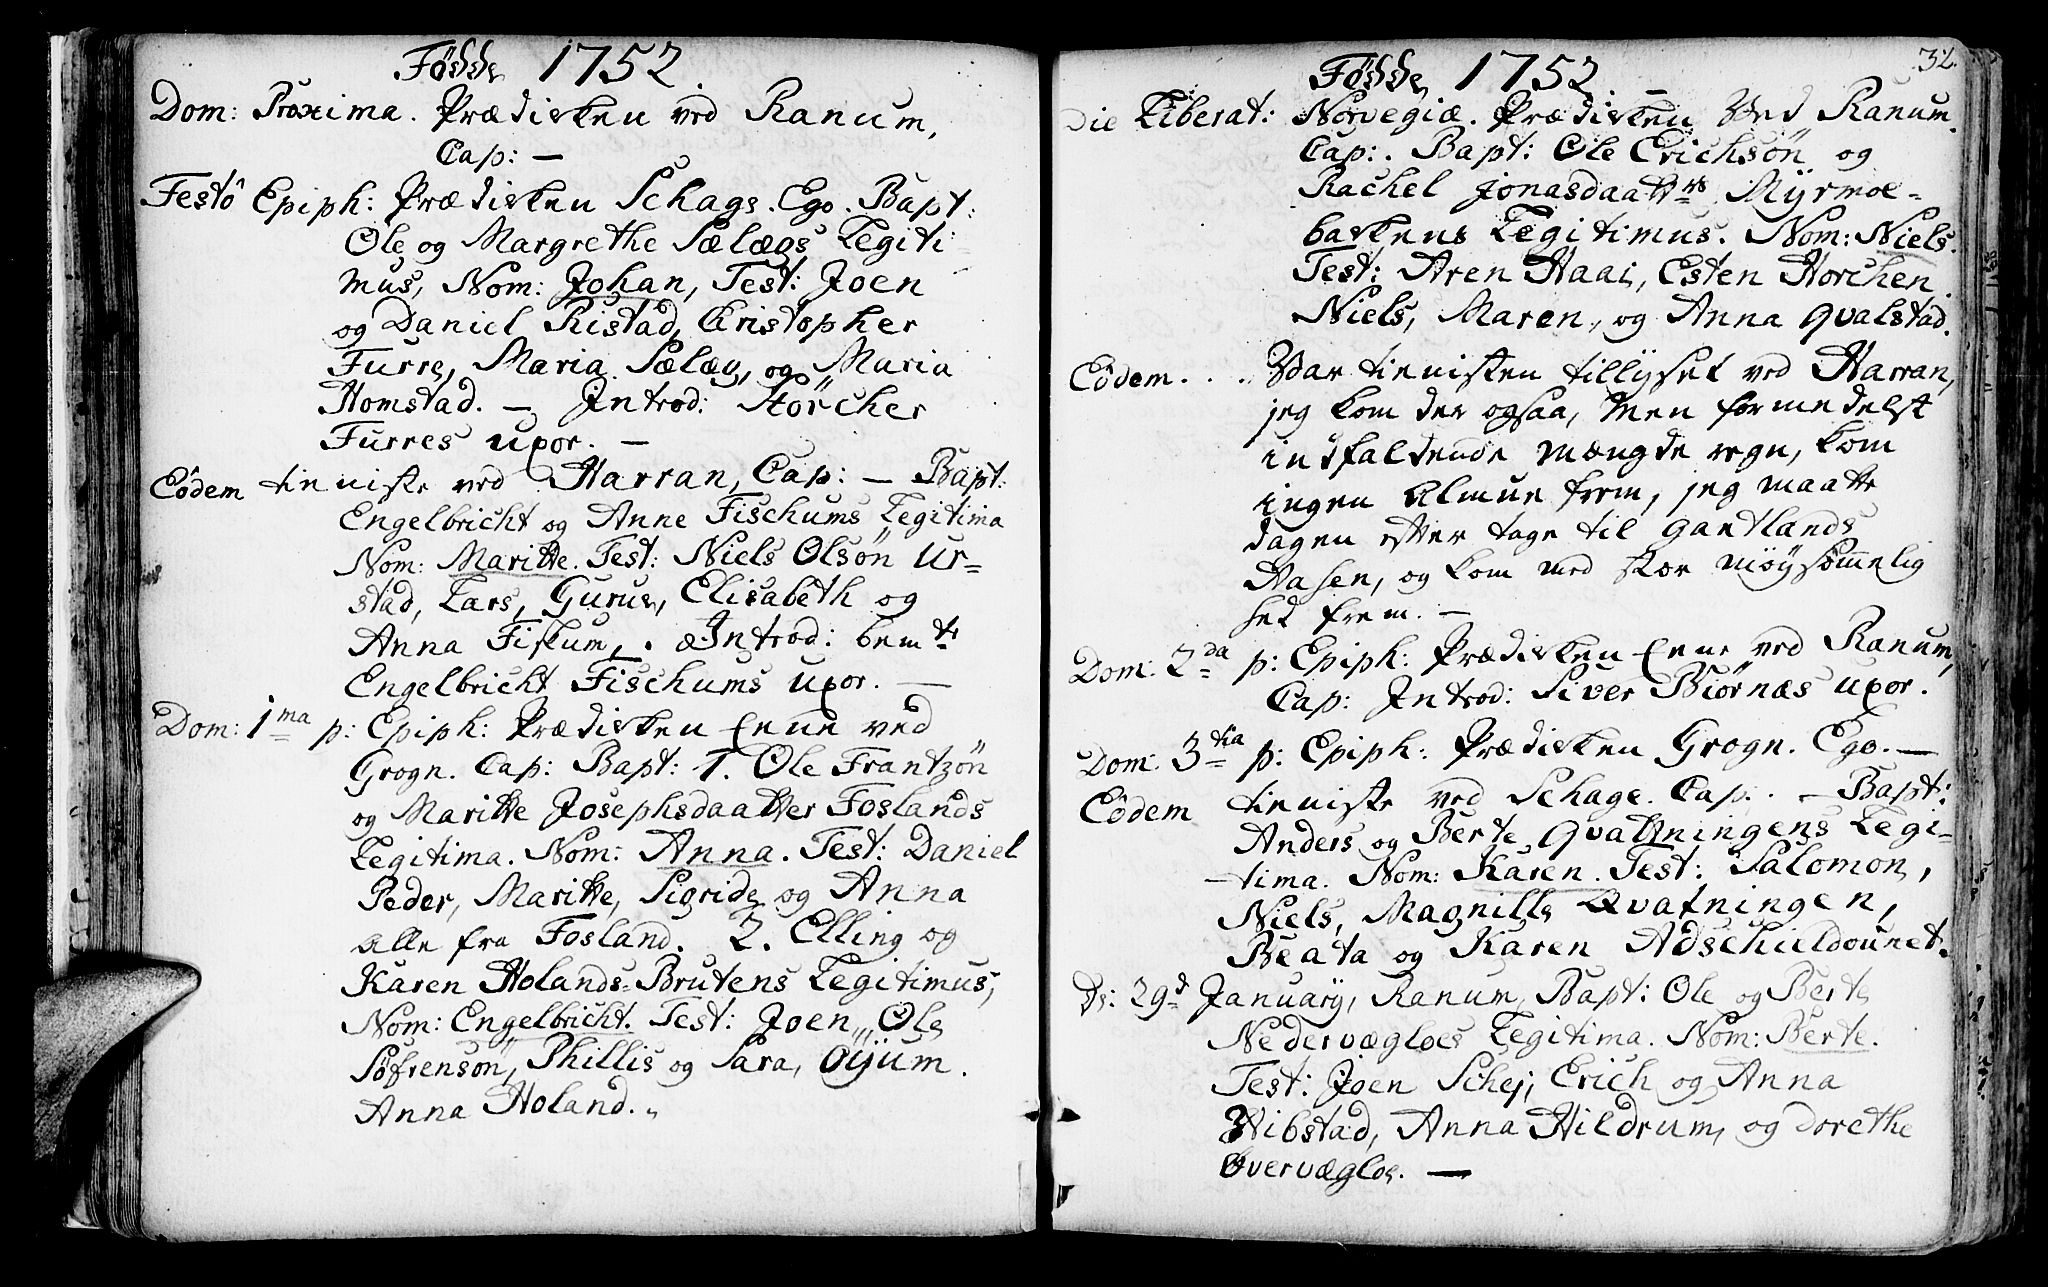 Födde 1752.
Dom: Proxima. Prædicken ved Ranum,
Cap: —
Festô Epiph: Prædicken Schags. Ego. Bapt:
Ole og Margrethe Sælægs Legiti-
mus, Nom: Johan, Test: Joen
og Daniel Ristad, Cristopher
Furre, Maria Sælæg, og Maria
Homstad. — Introd: Störcher
Furres uxor. —
Eôdem tieniste ved Harran, Cap: — Bapt:
Engelbricht og Anne Fischums Legitima
Nom: Maritte. Test: Niels Olsön Ur-
stad, Lars, Guru, Elisabeth og
Anna Fiskum. Introd: bemte
Engelbricht Fischums uxor. —
Dom: 1ma p: Epiph: Prædicken Ene ved
Grogn. Cap: Bapt: 1. Ole Frantzön
og Maritte Josephsdaatter Foslands
Legitima. Nom: Anna. Test: Daniel
Peder, Maritte, Sigride og Anna
alle fra Fosland. 2. Elling og
Karen Holands-Brutens Legitimus,
Nom: Engelbricht. Test: Joen, Ole
Söfrensön, Phillis og Sara, Öÿum.
Anna Holand.
32.
Födde 1752.
Die Liberat: Norvegiæ. Prædicken ved Ranum.
Cap:. Bapt: Ole Erichsön og
Rachel Jonasdaatters Mÿrmoe-
backens Legitimus. Nom: Niels.
Test: Aren Haai, Esten Horchen.
Niels, Maren, og Anna Qvalstad.
Eôdem . . . War tienisten tillyset ved Harran,
jeg kom der ogsaa, Men formedelst
indfaldende mængde regn, kom
ingen Almue frem, jeg maatte
dagen efter tage til Gantlands
Aasen, og kom med stor möÿsömmelig
hed frem. —
Dom: 2da p: Epiph: Prædicken Ene ved Ranum,
Cap: Introd: Siver Biörnæs uxor.
Dom: 3tia p: Epiph: Prædicken Grogn. Ego. —
Eôdem tieniste ved Schage. Cap. — Bapt:
Anders og Berte Qvatningens Legi-
tima. Nom: Karen. Test: Salomon,
Niels, Magnille Qvatningen,
Beata og Karen Adschieldounet.
Ds: 29d Januarÿ, Ranum, Bapt: Ole og Berte
Nedervægloes Legitima. Nom: Berte.
Test: Joen Schej, Erich og Anna
Wibstad, Anna Hildrum, og Dorethe
Overvægloe. —